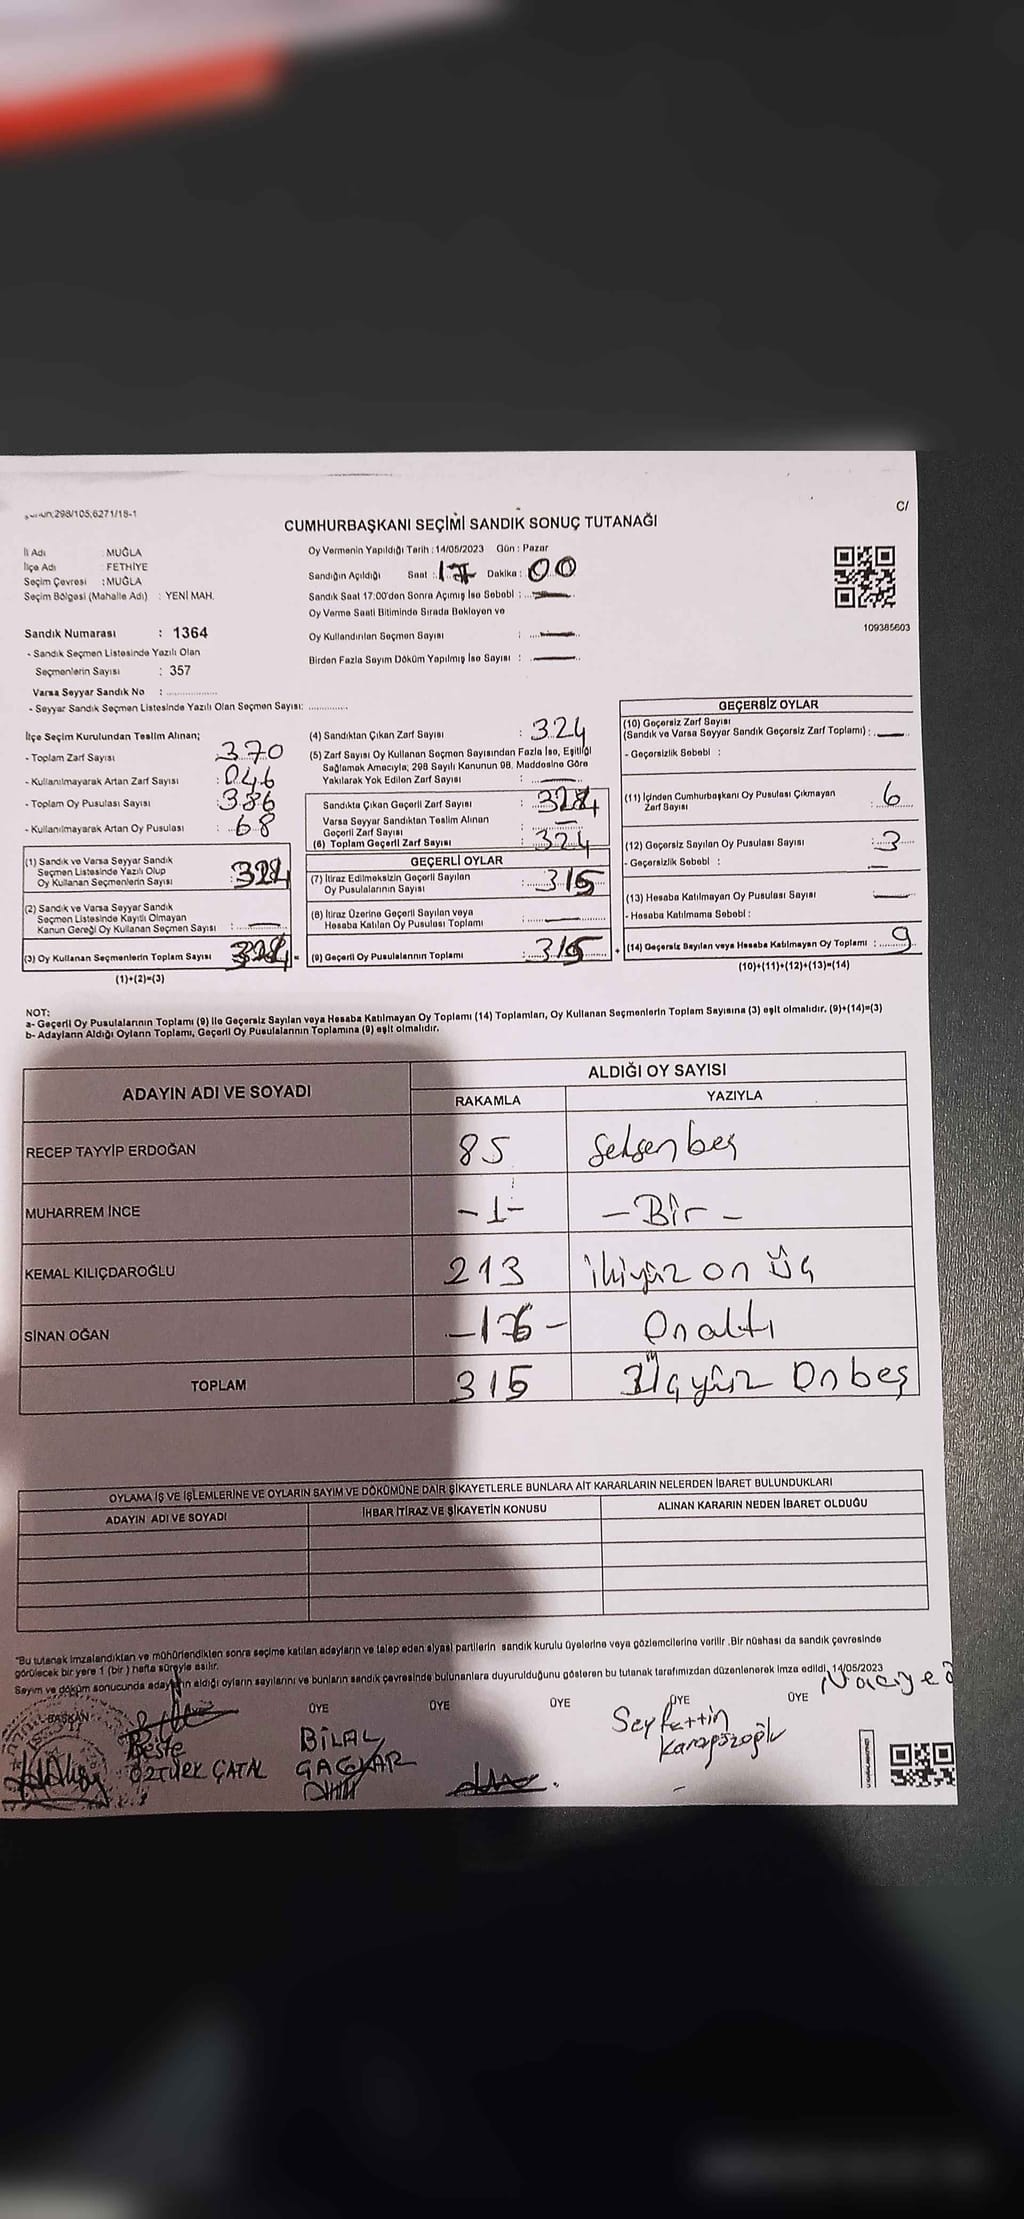 298/105,6271/18-1
C/
CUMHURBAŞKANI SEÇİMİ SANDIK SONUÇ TUTANAĞI
İl Adı : MUĞLA
İlçe Adı : FETHİYE
Seçim Çevresi : MUĞLA
Seçim Bölgesi (Mahalle Adı) : YENİ MAH.
Sandık Numarası : 1364
- Sandık Seçmen Listesinde Yazılı Olan
Seçmenlerin Sayısı : 357
Varsa Seyyar Sandık No : ..............
- Seyyar Sandık Seçmen Listesinde Yazılı Olan Seçmen Sayısı: ...........
Oy Vermenin Yapıldığı Tarih : 14/05/2023 Gün : Pazar
Sandığın Açıldığı Saat : 17 Dakika : 00
Sandık Saat 17:00'den Sonra Açımış İse Sebebi : —
Oy Verme Saati Bitiminde Sırada Bekleyen ve
Oy Kullandırılan Seçmen Sayısı : —
Birden Fazla Sayım Döküm Yapılmış İse Sayısı : —
109385603
İlçe Seçim Kurulundan Teslim Alınan;
- Toplam Zarf Sayısı : 370
- Kullanılmayarak Artan Zarf Sayısı : 046
- Toplam Oy Pusulası Sayısı : 386
- Kullanılmayarak Artan Oy Pusulası : 68
(1) Sandık ve Varsa Seyyar Sandık
Seçmen Listesinde Yazılı Olup
Oy Kullanan Seçmenlerin Sayısı : 324
(2) Sandık ve Varsa Seyyar Sandık
Seçmen Listesinde Kayıtlı Olmayan
Kanun Gereği Oy Kullanan Seçmen Sayısı : —
(3) Oy Kullanan Seçmenlerin Toplam Sayısı 324
(1)+(2)=(3)
(4) Sandıktan Çıkan Zarf Sayısı : 324
(5) Zarf Sayısı Oy Kullanan Seçmen Sayısından Fazla İse, Eşitliği
Sağlamak Amacıyla; 298 Sayılı Kanunun 98. Maddesine Göre
Yakılarak Yok Edilen Zarf Sayısı : —
Sandıkta Çıkan Geçerli Zarf Sayısı : 324
Varsa Seyyar Sandıktan Teslim Alınan
Geçerli Zarf Sayısı : —
(6) Toplam Geçerli Zarf Sayısı : 324
GEÇERLİ OYLAR
(7) İtiraz Edilmeksizin Geçerli Sayılan
Oy Pusulalarının Sayısı : 315
(8) İtiraz Üzerine Geçerli Sayılan veya
Hesaba Katılan Oy Pusulası Toplamı : —
(9) Geçerli Oy Pusulalarının Toplamı : 315
GEÇERSİZ OYLAR
(10) Geçersiz Zarf Sayısı
(Sandık ve Varsa Seyyar Sandık Geçersiz Zarf Toplamı) : —
- Geçersizlik Sebebi :
(11) İçinden Cumhurbaşkanı Oy Pusulası Çıkmayan
Zarf Sayısı : 6
(12) Geçersiz Sayılan Oy Pusulası Sayısı : 3
- Geçersizlik Sebebi : —
(13) Hesaba Katılmayan Oy Pusulası Sayısı —
- Hesaba Katılmama Sebebi :
(14) Geçersiz Sayılan veya Hesaba Katılmayan Oy Toplamı : 9
(10)+(11)+(12)+(13)=(14)
NOT:
a- Geçerli Oy Pusulalarının Toplamı (9) ile Geçersiz Sayılan veya Hesaba Katılmayan Oy Toplamı (14) Toplamları, Oy Kullanan Seçmenlerin Toplam Sayısına (3) eşit olmalıdır. (9)+(14)=(3)
b- Adayların Aldığı Oyların Toplamı, Geçerli Oy Pusulalarının Toplamına (9) eşit olmalıdır.
ADAYIN ADI VE SOYADI
ALDIĞI OY SAYISI
RAKAMLA YAZIYLA
RECEP TAYYİP ERDOĞAN 85 Seksen beş
MUHARREM İNCE -1- - Bir -
KEMAL KILIÇDAROĞLU 213 ikiyüz on üç
SİNAN OĞAN -16- Onaltı
TOPLAM 315 Üçyüz Onbeş
OYLAMA İŞ VE İŞLEMLERİNE VE OYLARIN SAYIM VE DÖKÜMÜNE DAİR ŞİKAYETLERLE BUNLARA AİT KARARLARIN NELERDEN İBARET BULUNDUKLARI
ADAYIN ADI VE SOYADI İHBAR İTİRAZ VE ŞİKAYETİN KONUSU ALINAN KARARIN NEDEN İBARET OLDUĞU
"Bu tutanak imzalandıktan ve mühürlendikten sonra seçime katılan adayların ve talep eden siyasi partilerin sandık kurulu üyelerine veya gözlemcilerine verilir .Bir nüshası da sandık çevresinde
görülecek bir yere 1 (bir ) hafta süreyle asılır.
Sayım ve döküm sonucunda adayların aldığı oyların sayılarını ve bunların sandık çevresinde bulunanlara duyurulduğunu gösteren bu tutanak tarafımızdan düzenlenerek imza edildi. 14/05/2023
BAŞKAN ÜYE ÜYE ÜYE ÜYE ÜYE
Beste
ÖZTÜRK ÇATAL
BİLAL
Seyfettin
Karagözoğlu